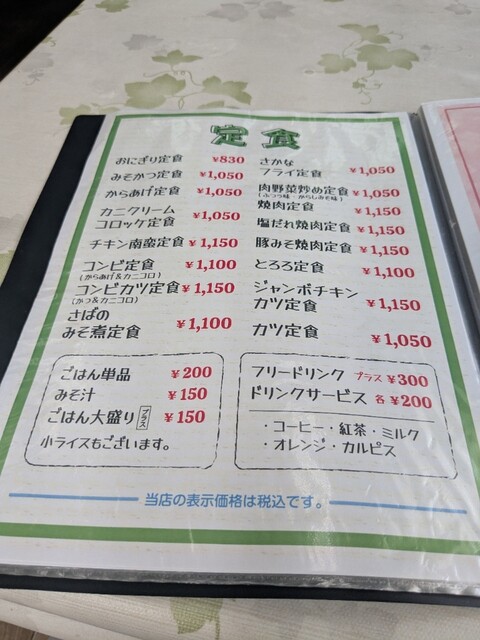 定食
おにぎり定食 ¥830
みそかつ定食 ¥1,050
からあげ定食 ¥1,050
カニクリーム
コロッケ定食 ¥1,050
チキン南蛮定食 ¥1,150
コンビ定食 ¥1,100
(からあげ&カニコロ)
コンビカツ定食 ¥1,150
(かつ&カニコロ)
さばの
みそ煮定食 ¥1,100
さかな
フライ定食 ¥1,050
肉野菜炒め定食 ¥1,050
(ふつう味・からしみそ味)
焼肉定食 ¥1,150
塩だれ焼肉定食 ¥1,150
豚みそ焼肉定食 ¥1,150
とろろ定食 ¥1,100
ジャンボチキン
カツ定食 ¥1,150
カツ定食 ¥1,050
ごはん単品 ¥200
みそ汁 ¥150
ごはん大盛り プラス ¥150
小ライスもございます。
フリードリンク プラス ¥300
ドリンクサービス 各 ¥200
・コーヒー・紅茶・ミルク
・オレンジ・カルピス
当店の表示価格は税込です。